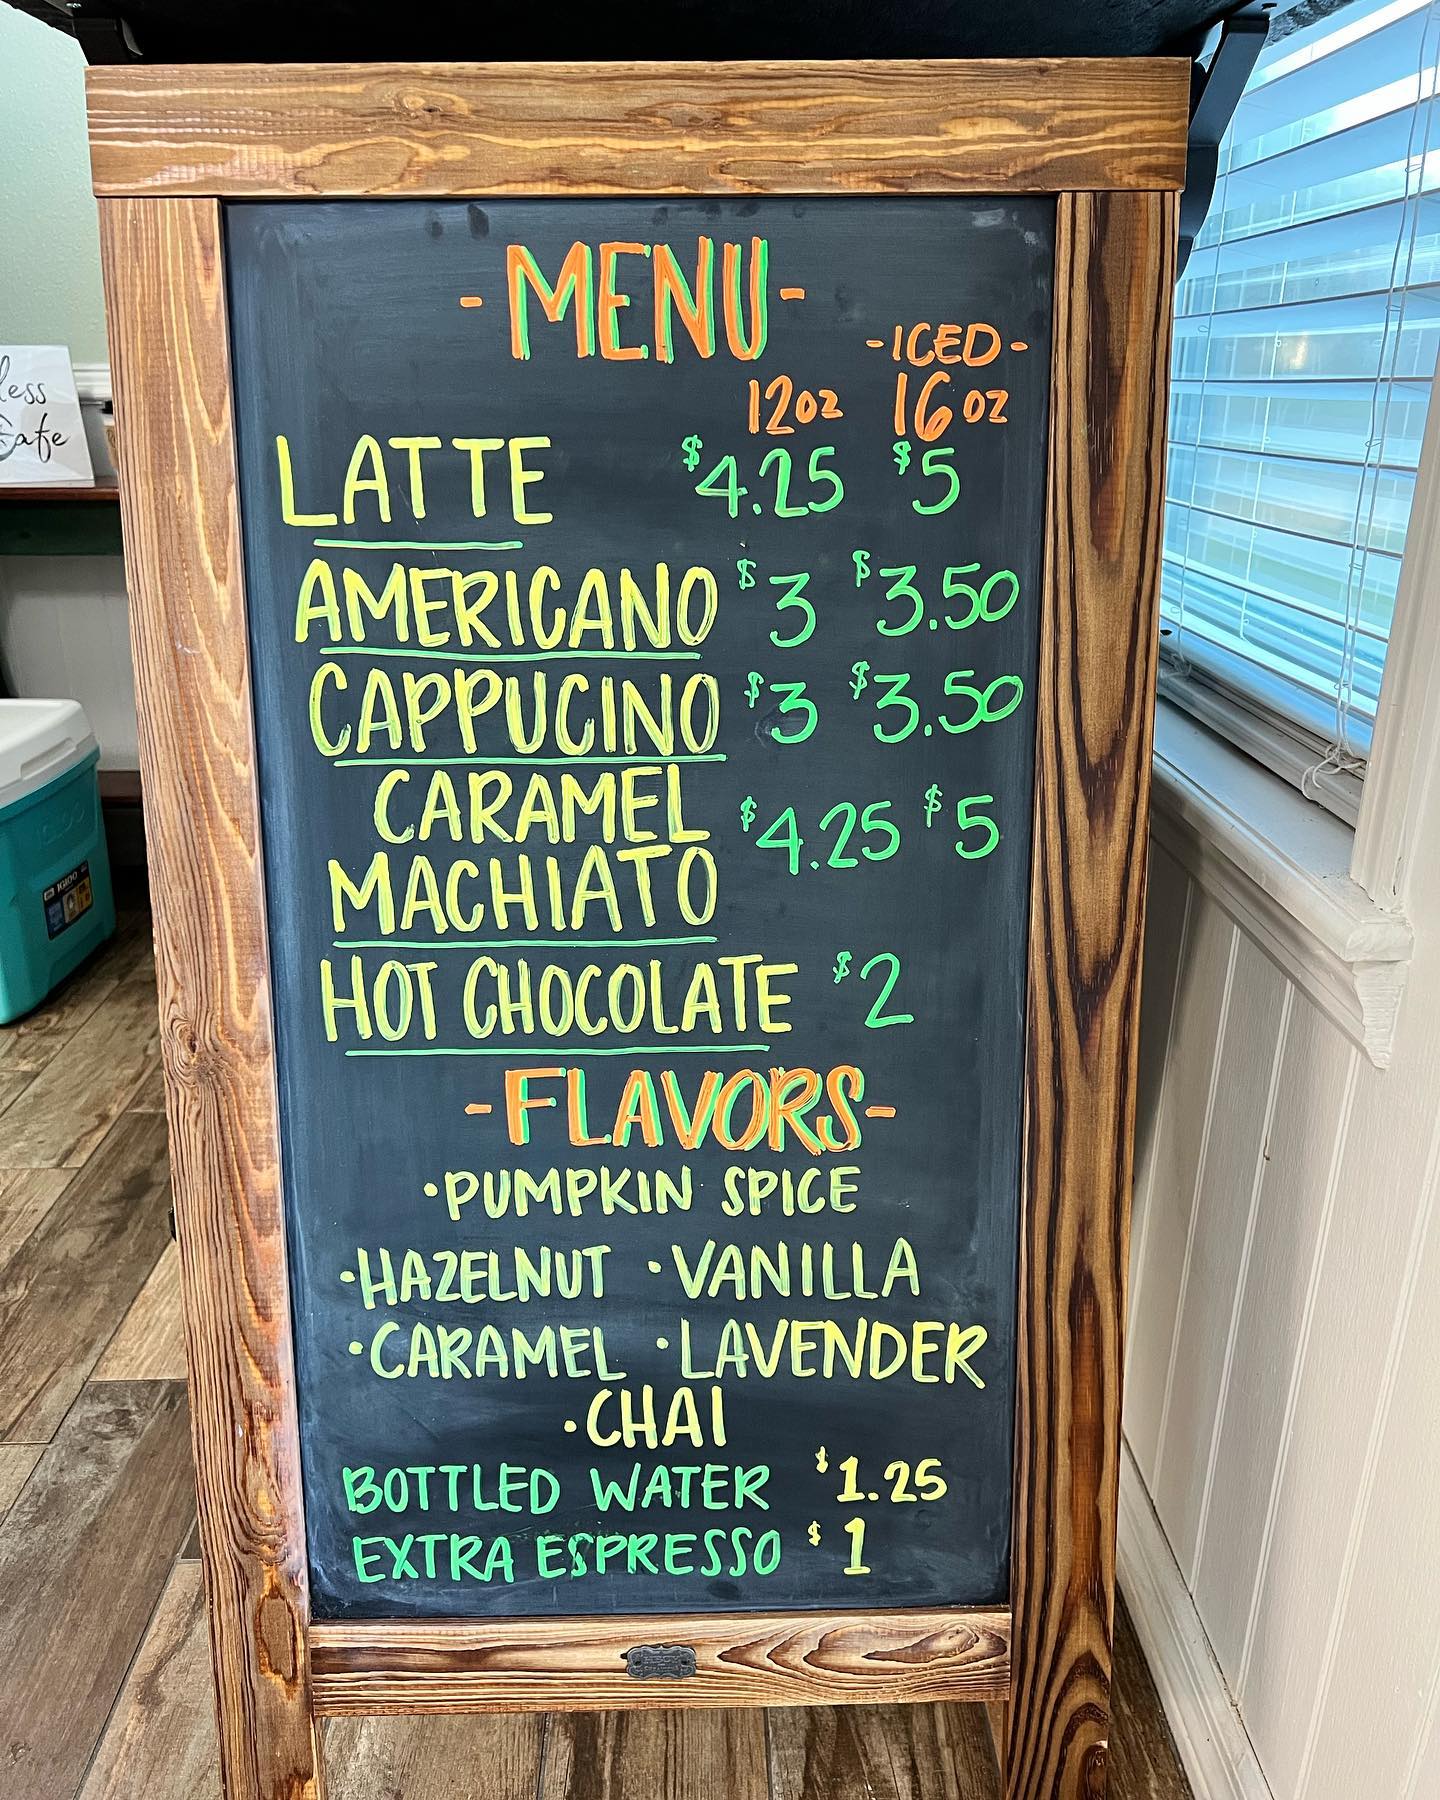 - MENU -
- ICED -
12oz 16oz
LATTE $4.25 $5
AMERICANO $3 $3.50
CAPPUCINO $3 $3.50
CARAMEL
MACHIATO $4.25 $5
HOT CHOCOLATE $2
- FLAVORS -
• PUMPKIN SPICE
• HAZELNUT • VANILLA
• CARAMEL • LAVENDER
• CHAI
BOTTLED WATER $1.25
EXTRA ESPRESSO $1
less
Cafe
IGLOO